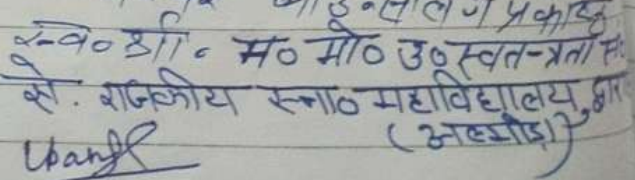 स्व० श्री. म० मो० उ० स्वतन्त्रता सं
से. राजकीय स्ना० महाविद्यालय, द्वार
(अल्मोड़ा)